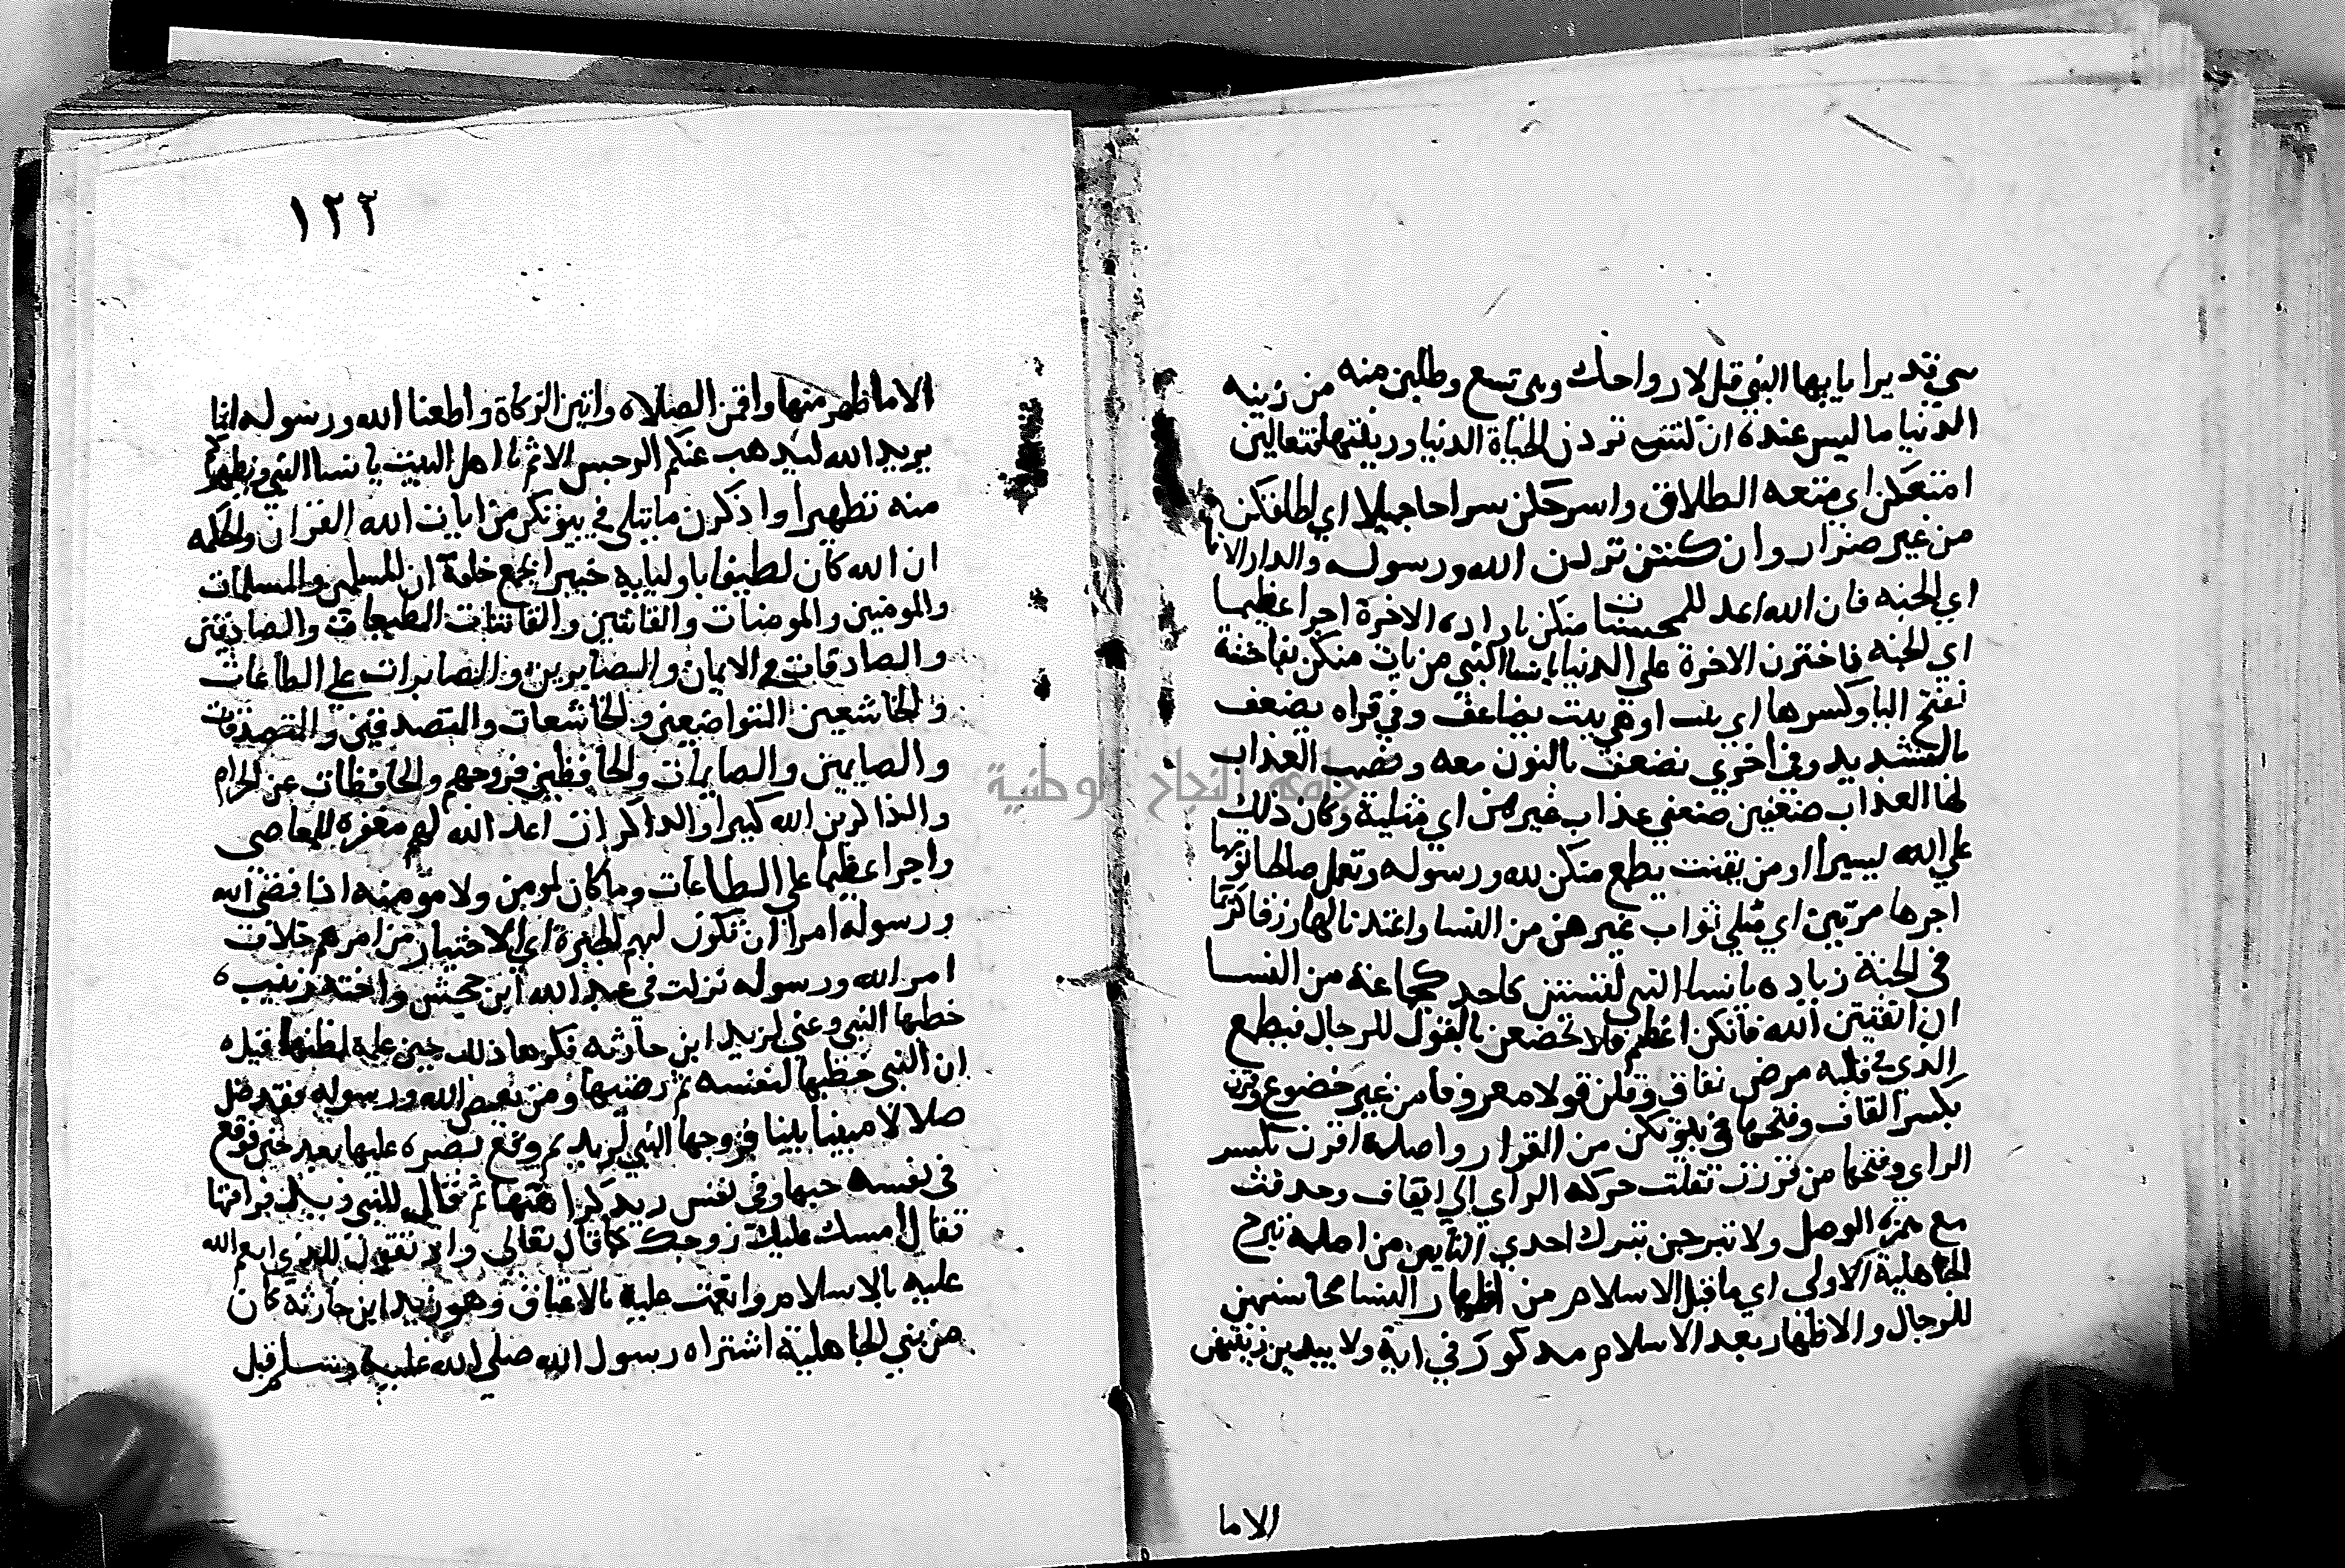 شي قديرا يا يها النبي قل لازواجك وهن تسع وطلبن منه من زينه
الدنيا ما ليس عنده ان كنتن تردن الحياة الدنيا وزينتها فتعالين
امتعكن اي متعه الطلاق واسرحكن سراحا جميلا اي اطلقكن
من غير ضرار وان كنتن تردن الله ورسوله والدار الا
اي الجنه فان الله اعد للمحسنات منكن بارادة الاخرة اجرا عظيما
اي الجنه فاخترن الاخرة علي الدنيا يا نسا النبي من يات منكن بفاحشة
بفتح اليا وكسرها اي بينت او هي بينت يضاعف وفي قراه يضعف
بالتشديد وفي اخري نضعف بالنون معه ونصب العذاب
لها العذاب ضعفين ضعفي عذاب غيرهن اي مثليه وكان ذلك
علي الله يسيرا ومن يقنت يطع منكن لله ورسوله وتعمل صالحا نوتها
اجرها مرتين اي مثلي ثواب غيرهن من النسا واعتدنا لها رزقا كريما
في الجنة زياده يا نسا النبي لستن كاحد كجماعة من النسا
ان اتقيتن الله فانكن اعظم فلا تخضعن بالقول للرجال فيطمع
الذي في قلبه مرض نفاق وقلن قولا معروفا من غير خضوع وقرن
بكسر القاف وفتحها في بيوتكن من القرار واصله اقررن بكسر
الراي وفتحها من قررت نقلت حركه الراي الي القاف وحذفت
مع همزه الوصل ولا تبرجن بترك احدي التايين من اصله تبرج
الجاهلية الاولى اي ما قبل الاسلام من اظهار النسا محاسنهن
للرجال والاظهار بعد الاسلام مذكور في اية ولا يبدين زينتهن
الاما
١٢٢
الاما ظهر منها واقمن الصلاه واتين الزكاة واطعنا الله ورسوله انما
يريد الله ليذهب عنكم الرجس الاثم يا اهل البيت يا نسا النبي ويطهركم
منه تطهيرا واذكرن ما يتلى في بيوتكن من ايات الله القران والحكمه
ان الله كان لطيفا باوليايه خبيرا بجميع خلقه ان المسلمين والمسلمات
والمومنين والمومنات والقانتين والقانتات المطيعات والصادقين
والصادقات في الايمان والصابرين والصابرات علي الطاعات
والخاشعين المتواضعين والخاشعات والمتصدقين والمتصدقات
والصايمين والصايمات والحافظين فروجهم والحافظات عن الحرام
والذاكرين الله كثيرا والذاكرات اعد الله لهم مغفرة للمعاصي
واجرا عظيما علي الطاعات وما كان لمومن ولا مومنه اذا قضي الله
ورسوله امرا ان تكون لهم الخيرة اي الاختيار من امرهم خلاف
امر الله ورسوله نزلت في عبد الله ابن جحش واخته زينب
خطبها النبي وعني لزيد ابن حارثه فكرها ذلك حين علما لظنهما قبله
ان النبي خطبها لنفسه ثم رضيها ومن يعص الله ورسوله فقد ضل
ضلالا مبينا بينا فزوجها النبي لزيد ثم وقع بصره عليها بعد حين فوقع
في نفسه حبها وفي نفس زيد كراهتها ثم فقال للنبي فراقها
فقال امسك عليك زوجك كما قال تعالى واذ تقول للذي انعم الله
عليه بالاسلام وانعمت عليه بالاعتاق وهو زيد ابن حارثة كان
من بني الجاهلية اشتراه رسول الله صلي الله عليه وسلم قبل
جامعة النجاح الوطنية